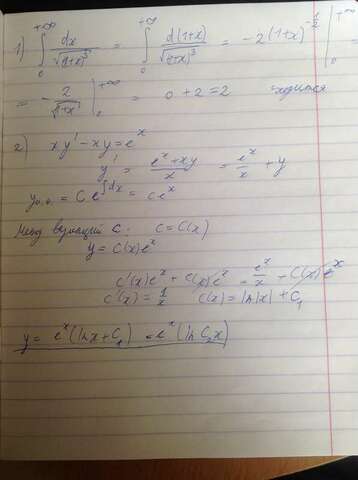 1) ∫₀^{+∞} dx/√(1+x)³ = ∫₀^{+∞} d(1+x)/√(1+x)³ = -2(1+x)^{-1/2} |₀^{+∞} =
= -2/√(1+x) |₀^{+∞} = 0+2=2
2) xy' - xy = e^x
y' = (e^x + xy)/x = e^x/x + y
= C e^{∫dx} = ce^x
C: C = C(x)
y = C(x)e^x
C'(x)e^x + C(x)e^x = e^x/x + C(x)e^x
C'(x) = 1/x C(x) = ln|x| + C₁
y = e^x(ln x + C₁) = e^x(ln C₂x)